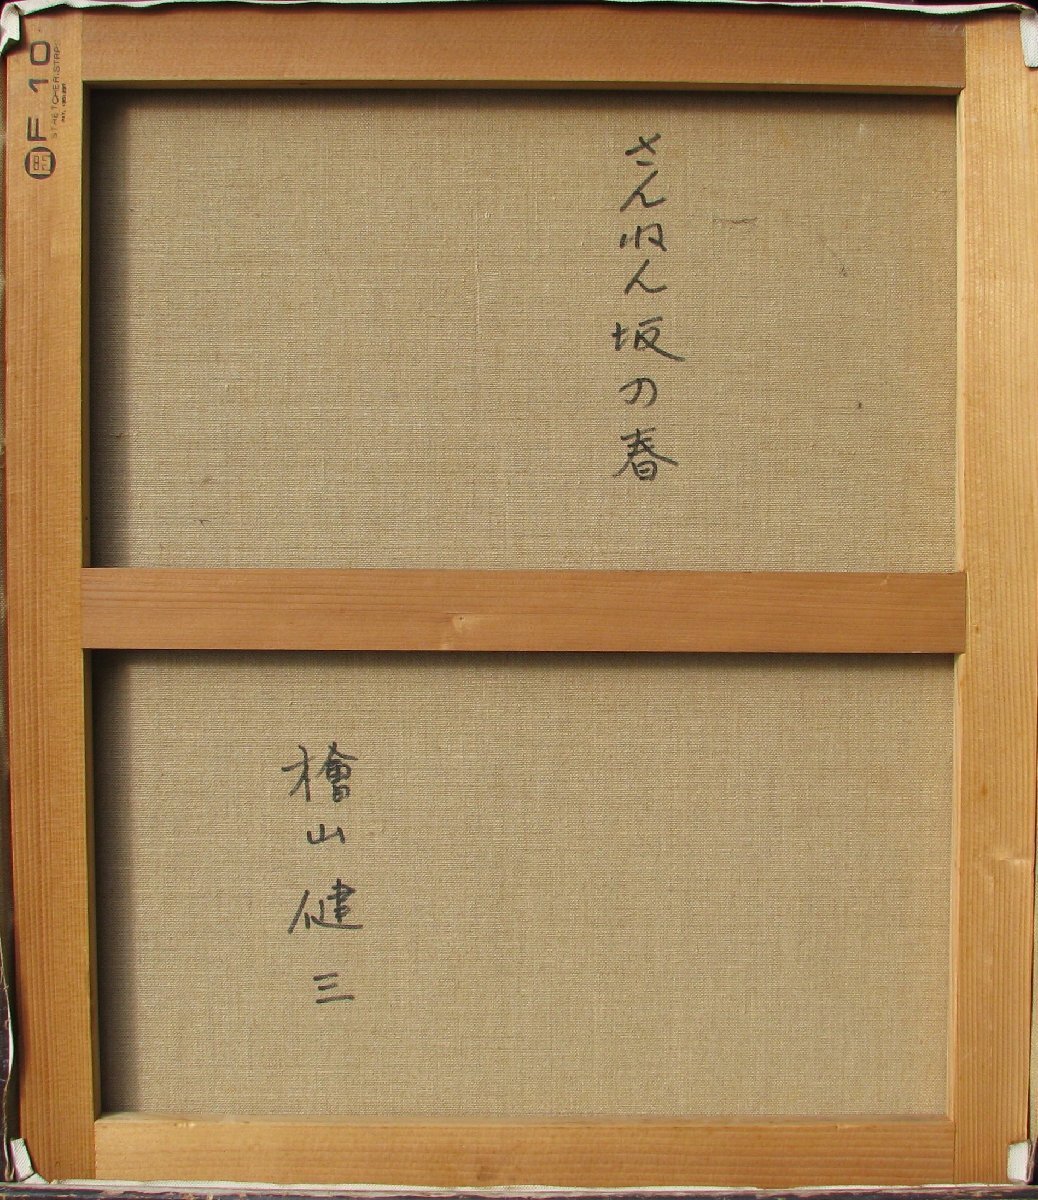 さんねん坂の春
檜山健三
F 10
STRETCHER STRIP